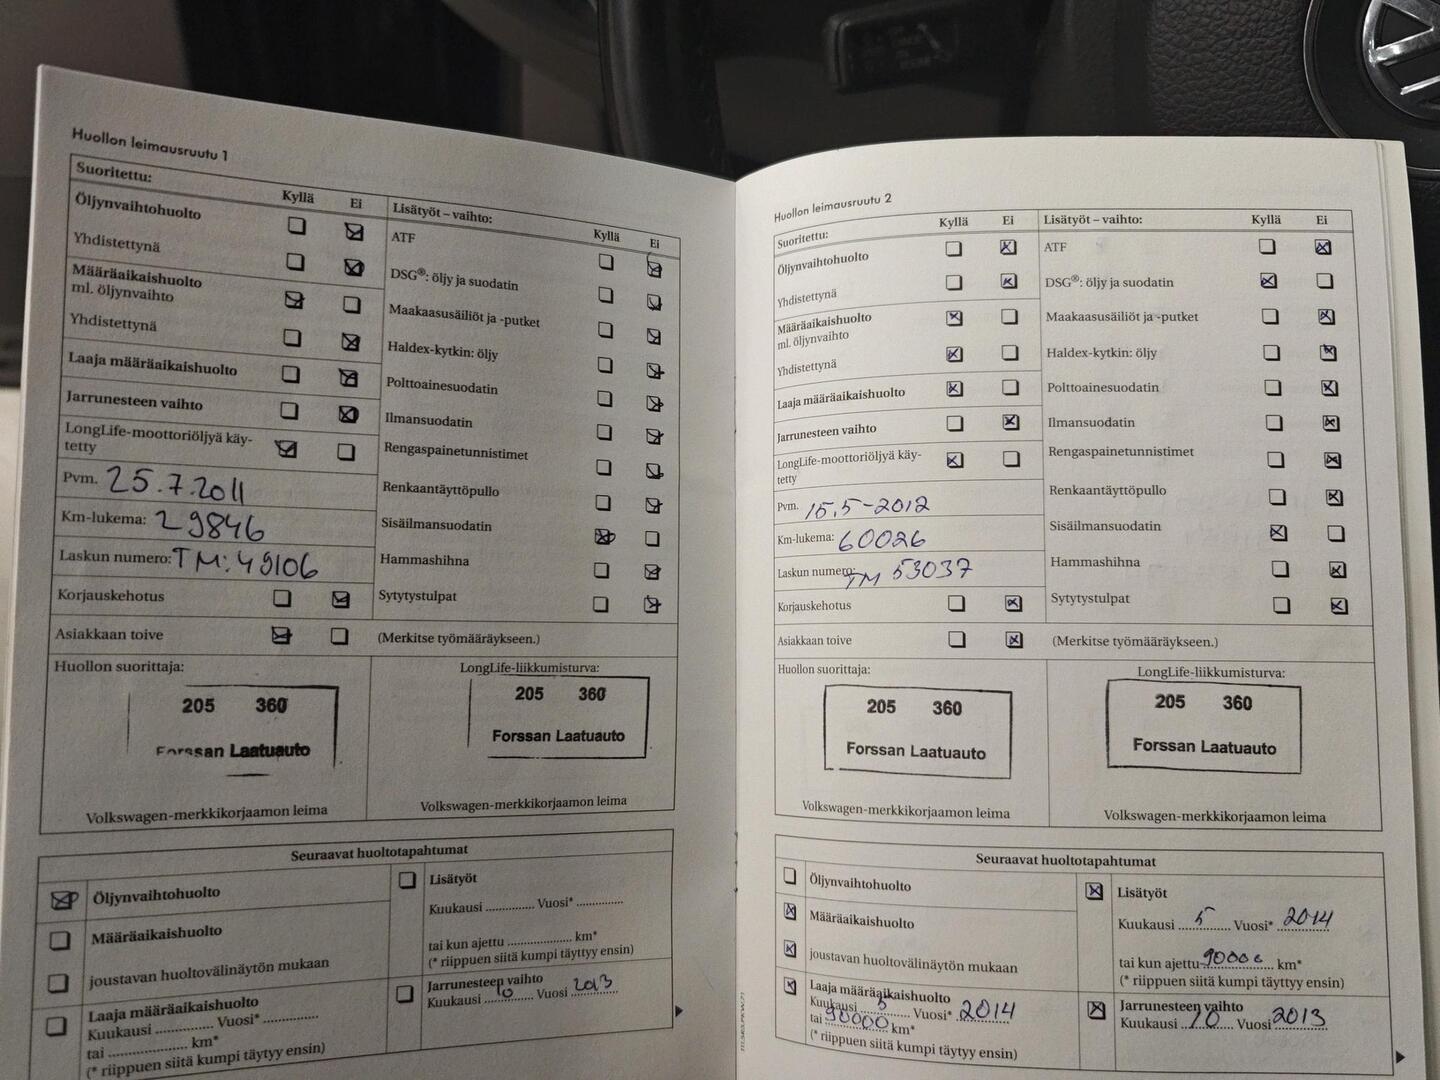 Huollon leimausruutu 1
Suoritettu:
Kyllä Ei
Öljynvaihtohuolto
Yhdistettynä
Määräaikaishuolto
ml. öljynvaihto
Yhdistettynä
Laaja määräaikaishuolto
Jarrunesteen vaihto
LongLife-moottoriöljyä käy-
tetty
Pvm. 25.7.2011
Km-lukema: 29846
Laskun numero: TM: 49106
Korjauskehotus
Asiakkaan toive
Lisätyöt – vaihto:
Kyllä Ei
ATF
DSG®: öljy ja suodatin
Maakaasusäiliöt ja -putket
Haldex-kytkin: öljy
Polttoainesuodatin
Ilmansuodatin
Rengaspainetunnistimet
Renkaantäyttöpullo
Sisäilmansuodatin
Hammashihna
Sytytystulpat
(Merkitse työmääräykseen.)
Huollon suorittaja:
205 360
Forssan Laatuauto
Volkswagen-merkkikorjaamon leima
LongLife-liikkumisturva:
205 360
Forssan Laatuauto
Volkswagen-merkkikorjaamon leima
Seuraavat huoltotapahtumat
Öljynvaihtohuolto
Määräaikaishuolto
joustavan huoltovälinäytön mukaan
Laaja määräaikaishuolto
Kuukausi .............. Vuosi* ..............
tai .................... km*
(* riippuen siitä kumpi täytyy ensin)
Lisätyöt
Kuukausi .............. Vuosi* ..............
tai kun ajettu .................... km*
(* riippuen siitä kumpi täyttyy ensin)
Jarrunesteen vaihto
Kuukausi 10 Vuosi 2013
Huollon leimausruutu 2
Suoritettu:
Kyllä Ei
Öljynvaihtohuolto
Yhdistettynä
Määräaikaishuolto
ml. öljynvaihto
Yhdistettynä
Laaja määräaikaishuolto
Jarrunesteen vaihto
LongLife-moottoriöljyä käy-
tetty
Pvm. 15.5-2012
Km-lukema: 60026
Laskun numero: TM 53037
Korjauskehotus
Asiakkaan toive
Lisätyöt – vaihto:
Kyllä Ei
ATF
DSG®: öljy ja suodatin
Maakaasusäiliöt ja -putket
Haldex-kytkin: öljy
Polttoainesuodatin
Ilmansuodatin
Rengaspainetunnistimet
Renkaantäyttöpullo
Sisäilmansuodatin
Hammashihna
Sytytystulpat
(Merkitse työmääräykseen.)
Huollon suorittaja:
205 360
Forssan Laatuauto
Volkswagen-merkkikorjaamon leima
LongLife-liikkumisturva:
205 360
Forssan Laatuauto
Volkswagen-merkkikorjaamon leima
Seuraavat huoltotapahtumat
Öljynvaihtohuolto
Määräaikaishuolto
joustavan huoltovälinäytön mukaan
Laaja määräaikaishuolto
Kuukausi 5 Vuosi* 2014
tai 90000 km*
(* riippuen siitä kumpi täyttyy ensin)
Lisätyöt
Kuukausi 5 Vuosi* 2014
tai kun ajettu 90000 km*
(* riippuen siitä kumpi täyttyy ensin)
Jarrunesteen vaihto
Kuukausi 10 Vuosi 2013